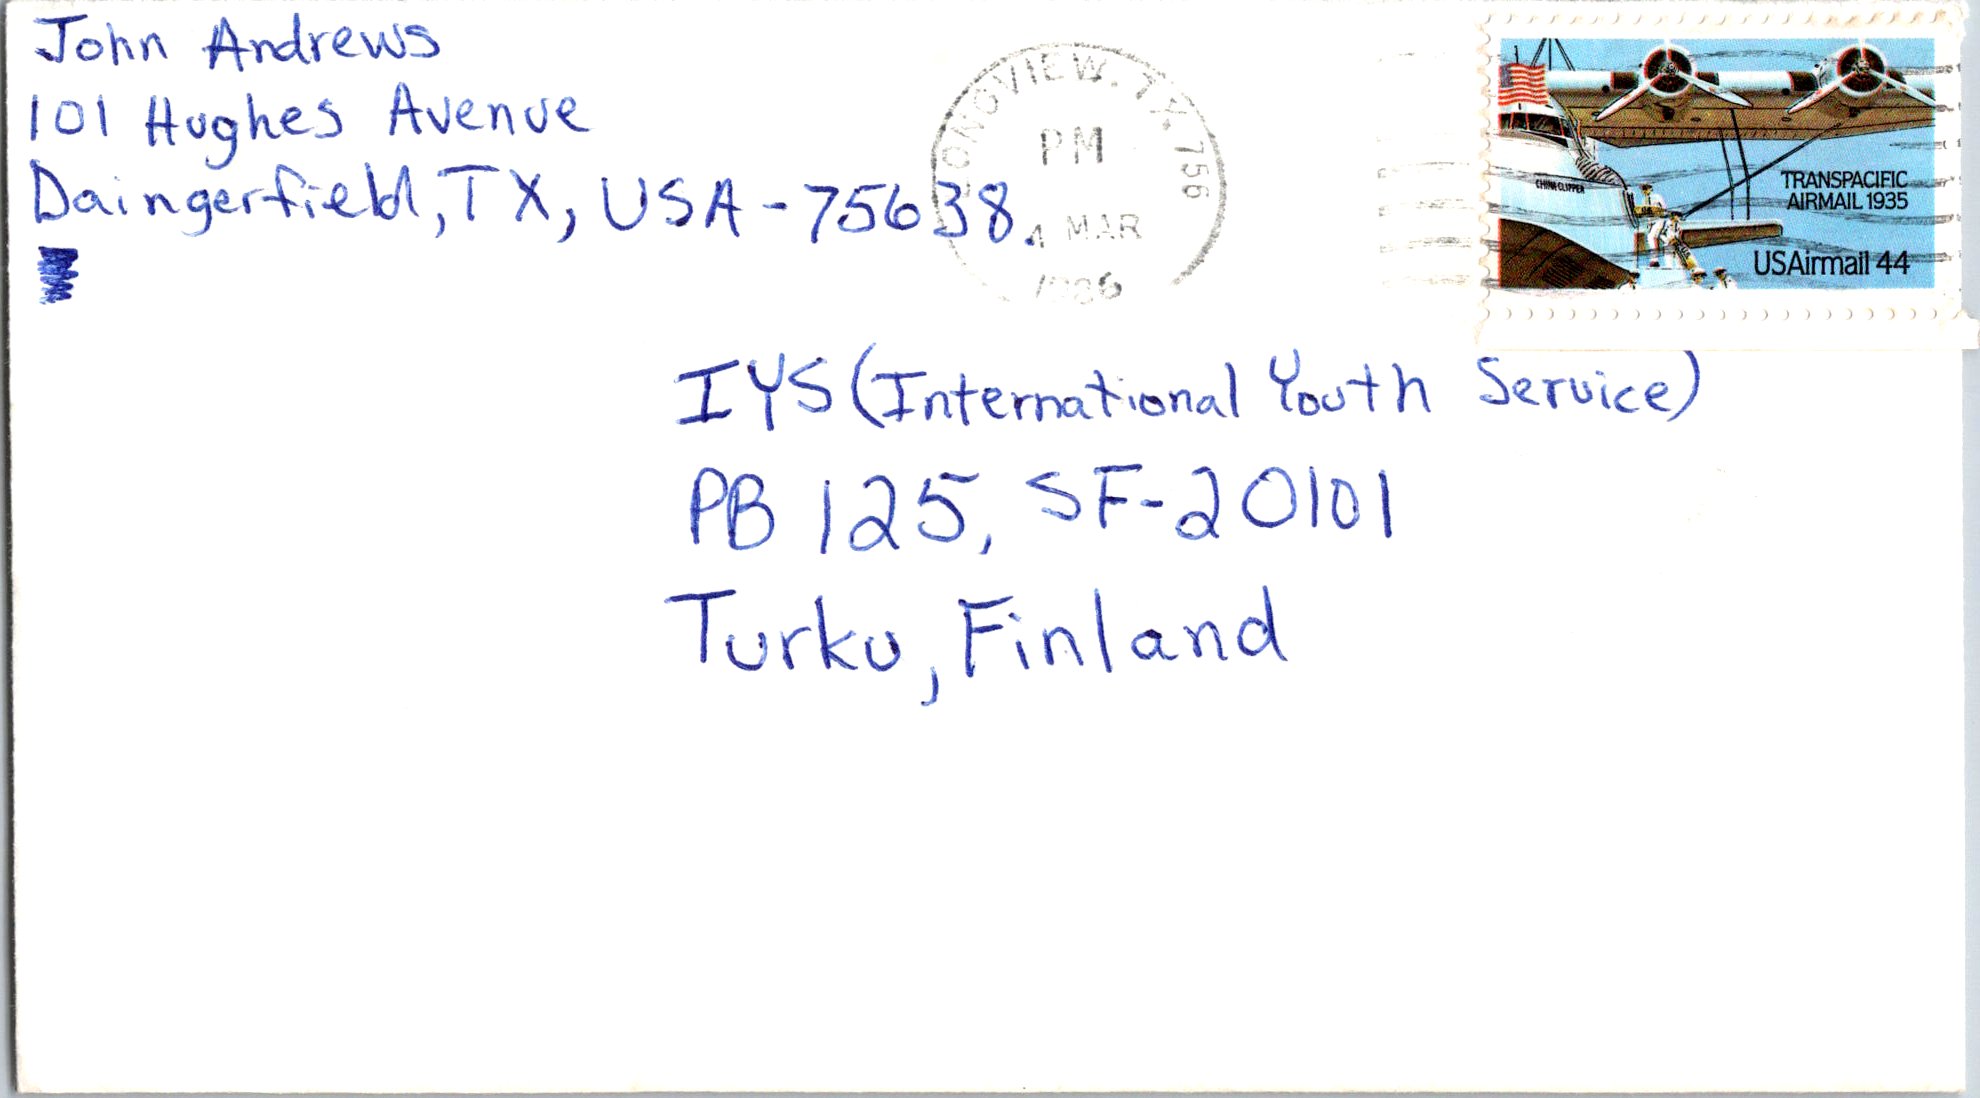 John Andrews
101 Hughes Avenue
Daingerfield, TX, USA - 75638.
LONGVIEW. TX. 756
PM
4 MAR
1986
CHINA CLIPPER
TRANSPACIFIC
AIRMAIL 1935
USAirmail 44
IYS (International Youth Service)
PB 125, SF-20101
Turku, Finland